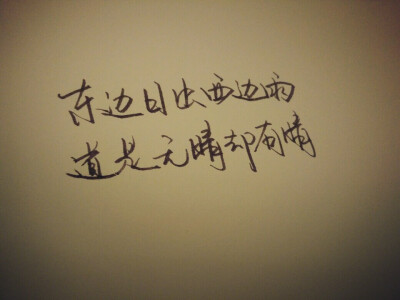 东边日出西边雨
道是无晴却有晴